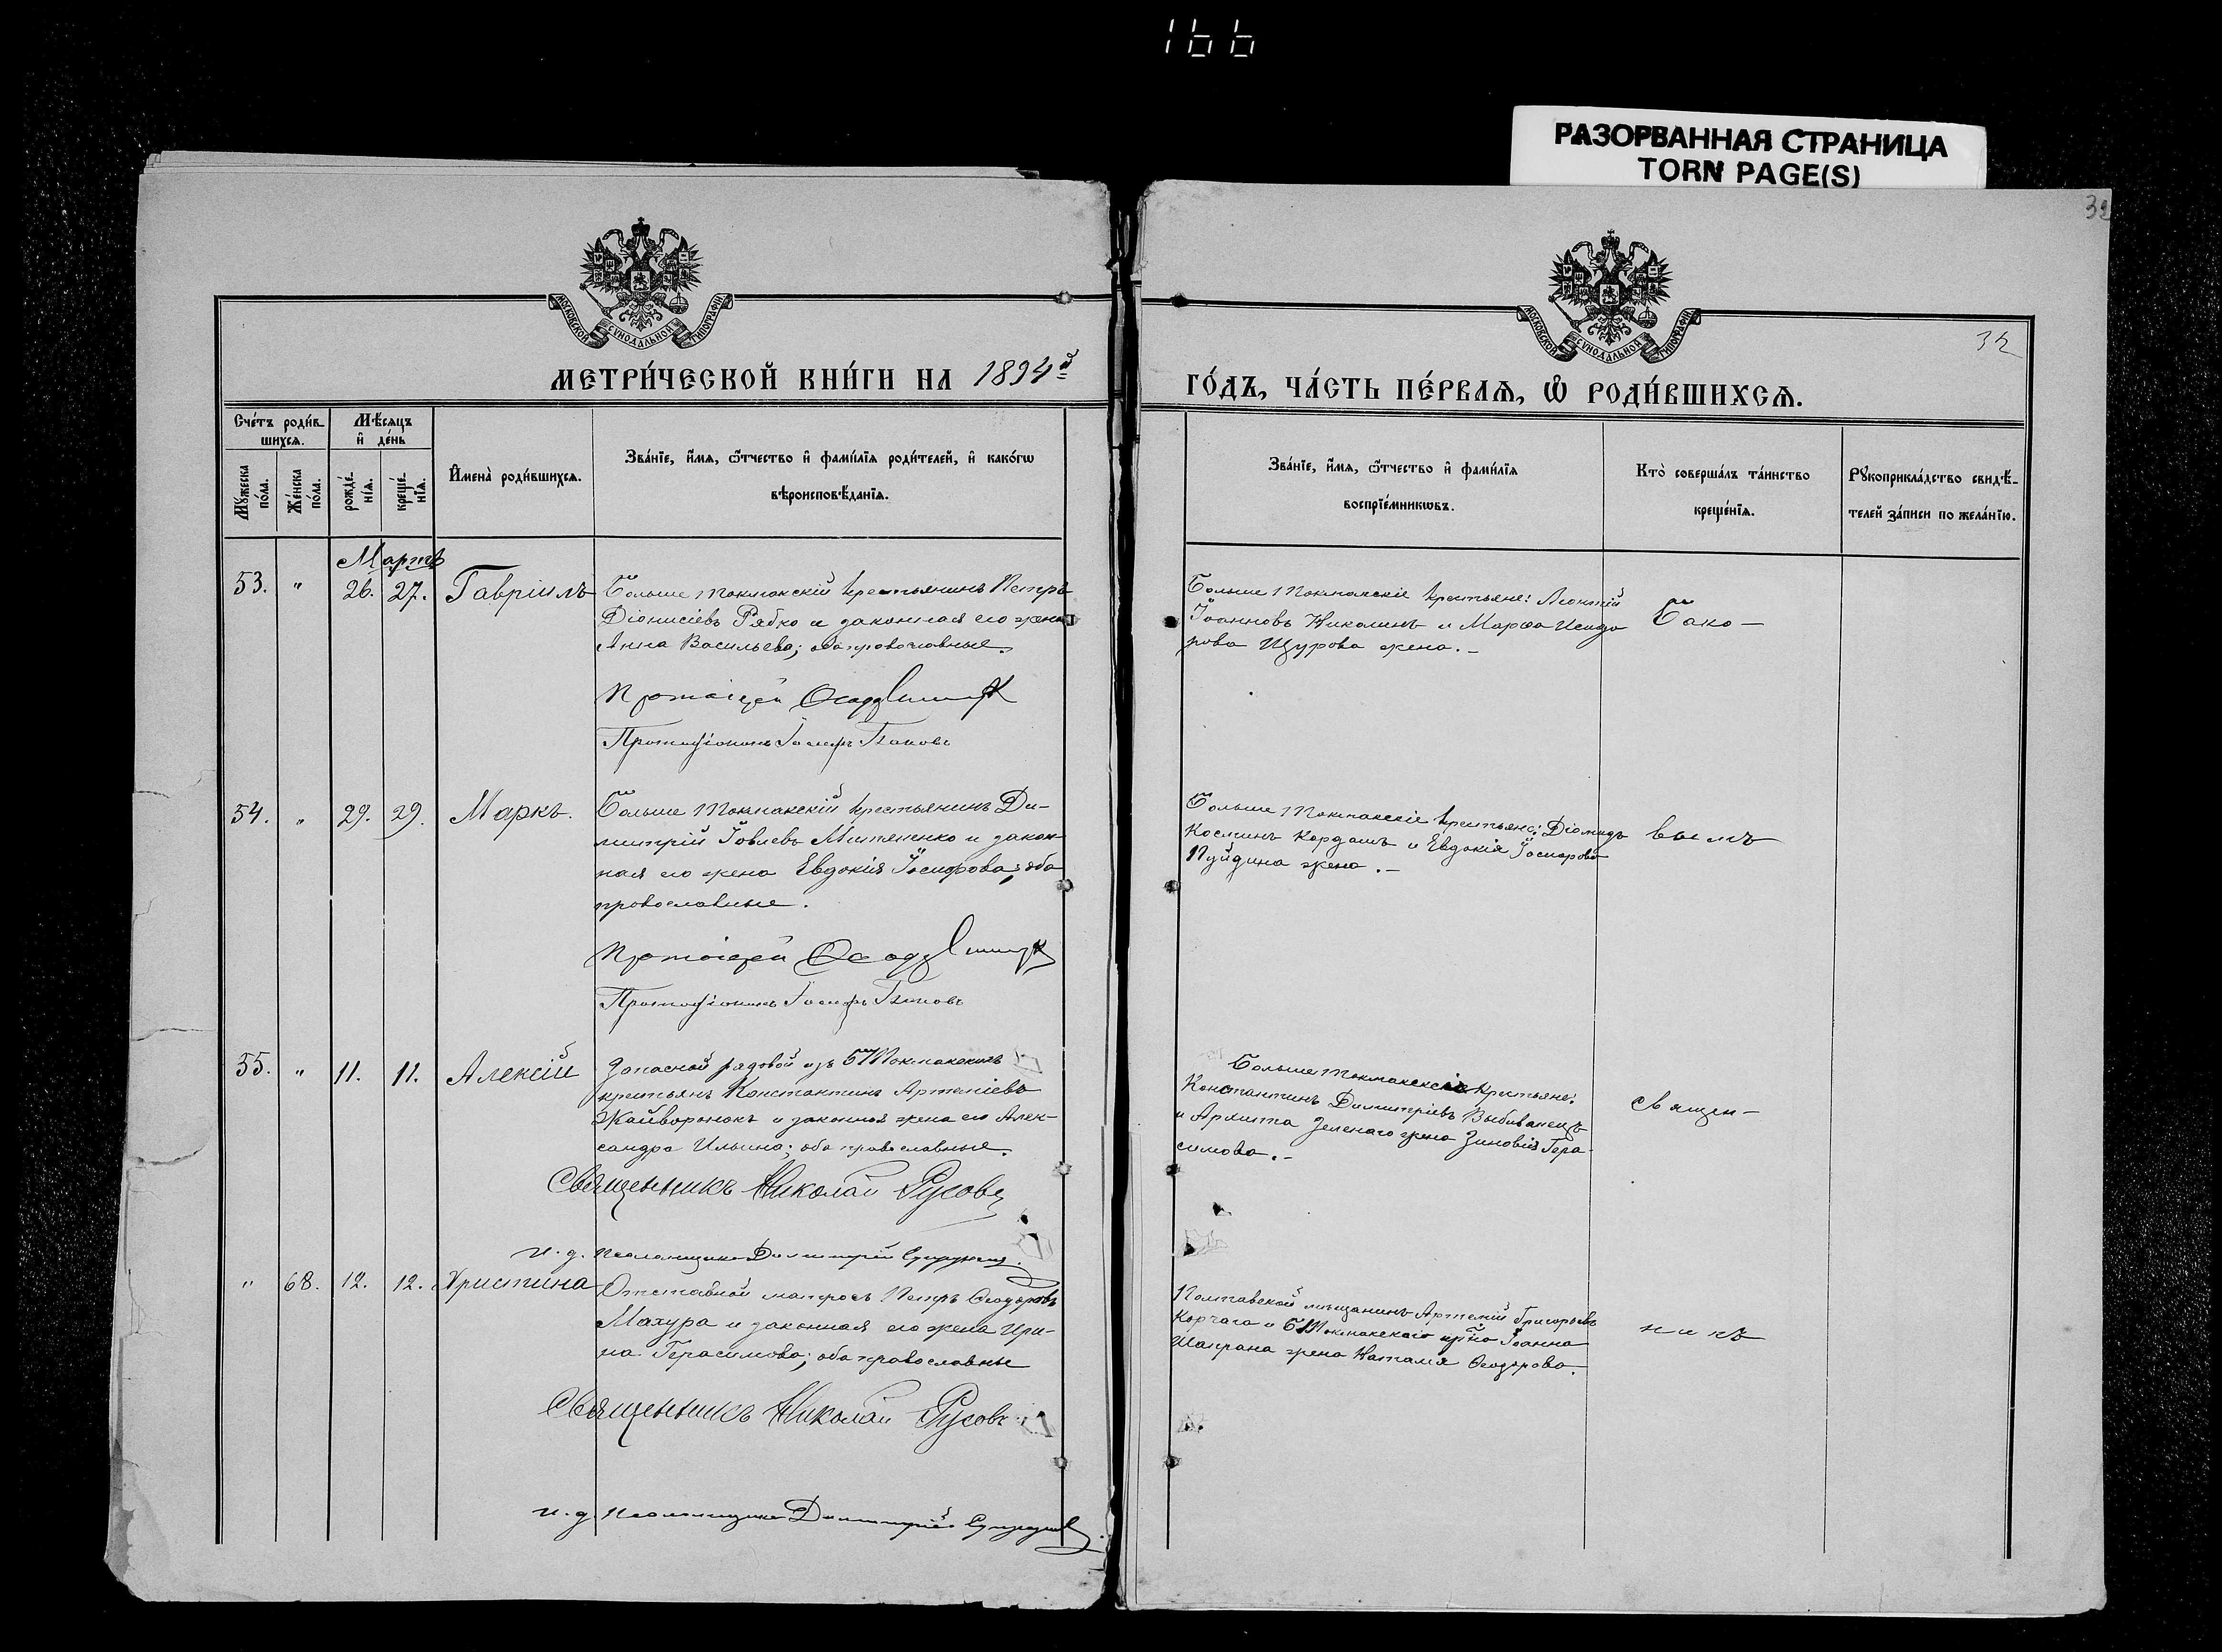 166
РАЗОРВАННАЯ СТРАНИЦА
TORN PAGE(S)
32
МОСКОВСКОЙ СѴНОДАЛЬНОЙ ТИПОГРАФІИ
МОСКОВСКОЙ СѴНОДАЛЬНОЙ ТИПОГРАФІИ
32
МЕТРИ́ЧЕСКОЙ КНИ́ГИ НА 1894й
ГО́ДЪ, ЧА́СТЬ ПЕ́РВАѦ, Ѡ҆ РОДИ́ВШИХСѦ.
Сче́тъ роди́в-
шихсѧ.
Мѣ́сѧцъ
и҆ де́нь
Мꙋ́жеска
по́ла.
Же́нска
по́ла.
рожде́-
нїѧ.
креще́-
нїѧ.
И҆мена̀ роди́вшихсѧ.
Зва́нїе, и҆́мѧ, ѻ҆́тчество и҆ фами́лїѧ роди́телей, и҆ како́гѡ
вѣроисповѣ́данїѧ.
Зва́нїе, и҆́мѧ, ѻ҆́тчество и҆ фами́лїѧ
воспрїе́мникѡвъ.
Кто̀ соверша́лъ та́инство
креще́нїѧ.
Рꙋкоприкла́дство свидѣ́-
телей за́писи по жела́нїю.
Мартъ
53. " 26. 27. Гавріилъ
Больше Токмакскій крестьянинъ Петръ
Діонисіевъ Рябко и законная его жена
Анна Васильева; оба православные.
Протоіерей
Протодіаконъ Іосифъ
Больше Токмакскіе крестьяне: Леонтій
Іоанновъ Николинъ и Марѳа Исидо
рова Щурова жена.-
Бако-
54. " 29. 29. Маркъ.
Больше Токмакскій крестьянинъ Ди-
митрій Іовлевъ Митяненко и закон
ная его жена Евдокія Іосифова; оба
православные.
Протоіерей
Протодіаконъ Іосифъ
Больше Токмакскіе крестьяне: Діомидъ
Косминъ Кордашъ и Евдокія
Пуйдина жена.-
вымъ
55. " 11. 11. Алексій
Запасной рядовой изъ Б Токмакскихъ
крестьянъ Константинъ Артеміевъ
Жайворонокъ и законная жена его Алек-
сандра Ильина; оба православные.
Священникъ Николай Русовъ
и. д. псаломщика Димитрій
Больше Токмакскіе крестьяне:
Константинъ Димитріевъ Выбиванецъ
и Архипа Зеленаго жена Зиновія Гера-
симова.-
священ-
" 68. 12. 12. Христина
Отставной матросъ Петръ Ѳеодоровъ
Махура и законная его жена Ири-
на Герасимова; оба православные
Священникъ Николай Русовъ
и. д. псаломщика Димитрій
Полтавской мѣщанинъ Артемій Григорьевъ
Корчага и Б Токмакскаго кр-на Іоанна
Шапрана жена Наталія Ѳеодорова.
никъ